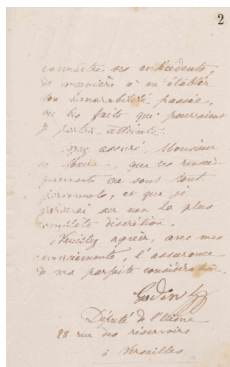 2
connaître ses antécédents,
de manière à en établir
son honorabilité passée,
ou les faits qui pourraient
y porter atteinte.
Soyez assuré, Monsieur
le Maire, que ces rensei-
gnements me sont tout
personnels, et que je
garderai sur eux la plus
complète discrétion.
Veuillez agréer, avec mes
remerciements, l'assurance
de ma parfaite considération.
Godin
Député de l'Aisne
28 rue des réservoirs
à Versailles